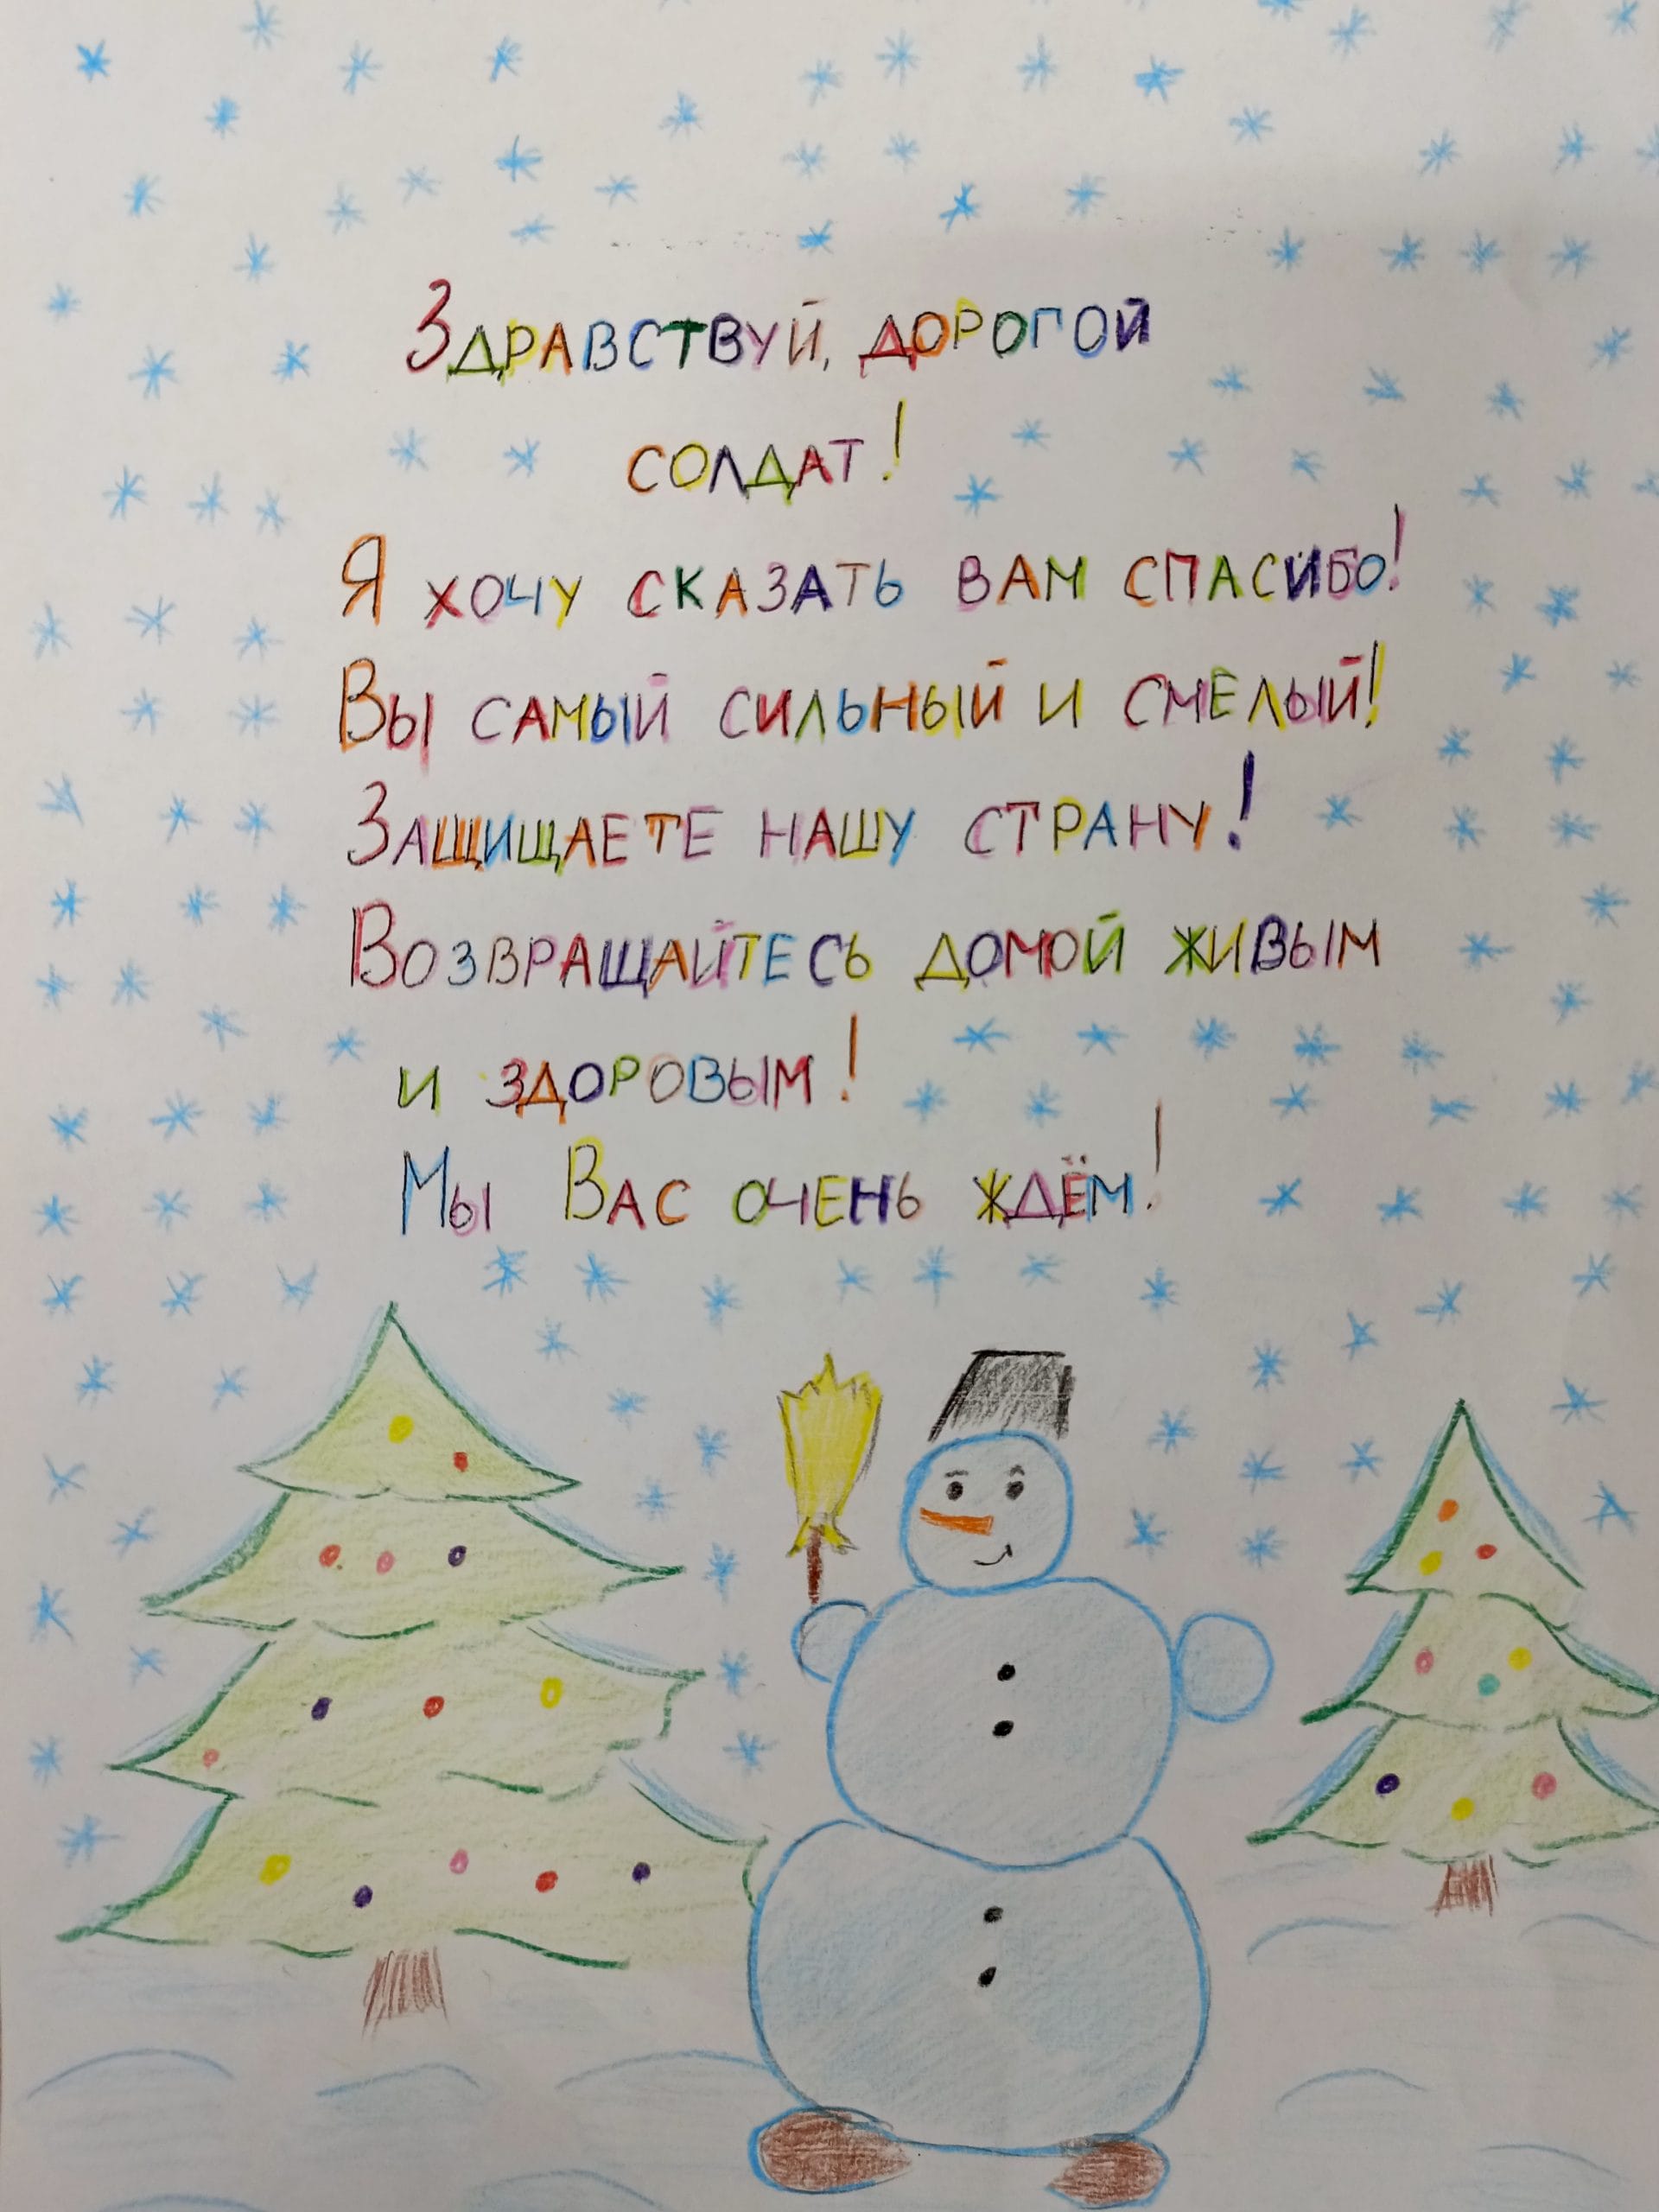 Здравствуй, дорогой
солдат!
Я хочу сказать вам спасибо!
Вы самый сильный и смелый!
Защищаете нашу страну!
Возвращайтесь домой живым
и здоровым!
Мы Вас очень ждём!